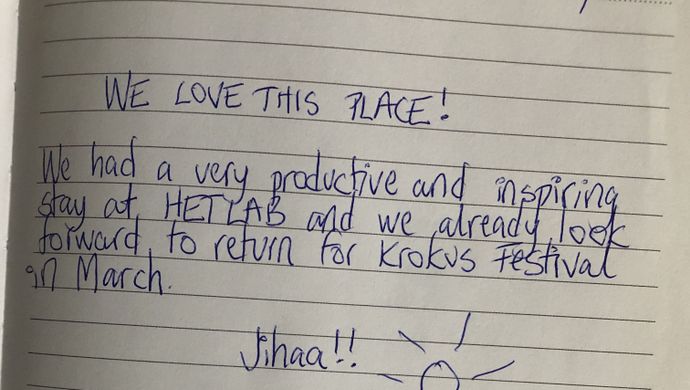 WE LOVE THIS PLACE!
We had a very productive and inspiring
stay at HETLAB and we already look
forward to return for Krokus Festival
in March.
Jihaa!!